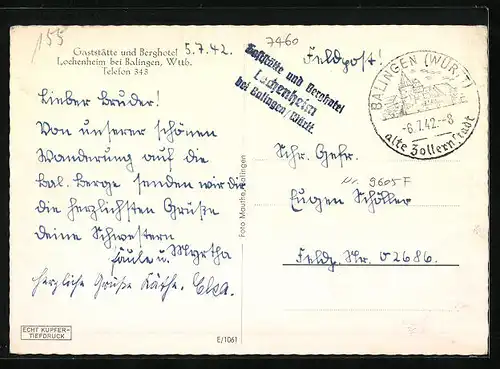 155
Gaststätte und Berghotel
Lochenheim bei Balingen, Wttb.
Telefon 343
5.7.42.
7460
Feldpost!
Gaststätte und Berghotel
Lochenheim
bei Balingen/Württ.
BALINGEN (WÜRTT)
-6.7.42.--8
alte Zollernstadt
Lieber Bruder!
Von unserer schönen
Wanderung auf die
Bal. Berge senden wir die
die herzlichsten Grüße
deine Schwestern
u. Myrtha
herzliche Grüße Käthe. Elsa.
Schr. Gefr.
Nr. 9605F
Eugen Schöller
Feldp. Nr. 02686.
Foto Mauthe, Balingen
ECHT KUPFER-
TIEFDRUCK
E/1061